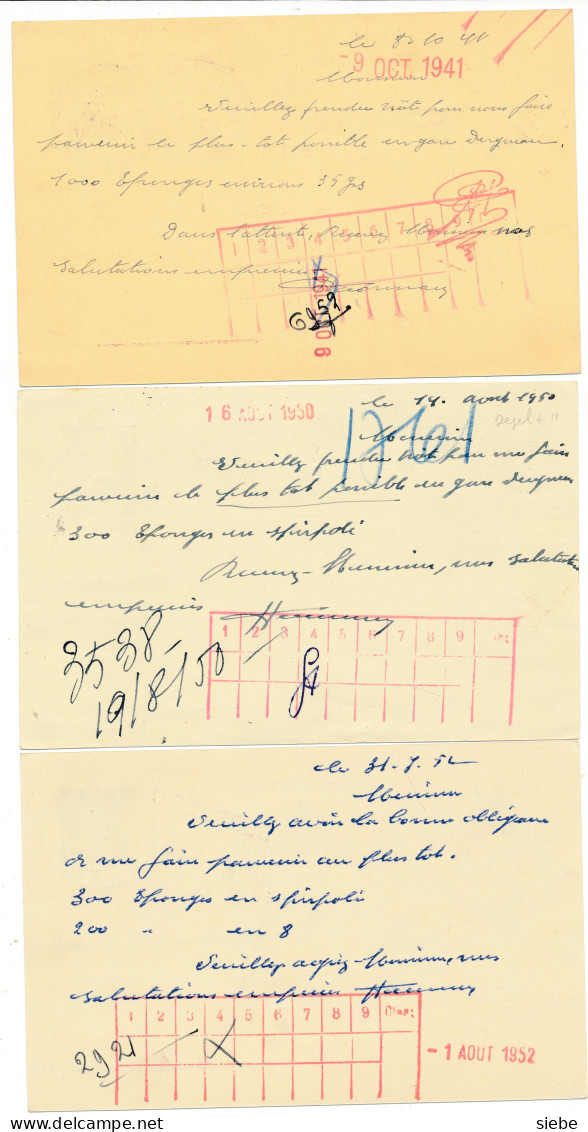 le 8-10-41
-9 OCT 1941
Monsieur
Veuillez prendre note pour nous faire
parvenir le plus-tot possible en gare
1000 Eponges environs 35 grs
Dans l'attente, Recevez Monsieur nos
1 2 3 4 5 6 7 8 9
salutations empressées
6959
le 14. août 1950
16 AOUT 1950
1761
Monsieur
Veuillez prendre note pour me faire
parvenir le plus tot possible en gare
300 Eponges en spirpoli
Recevez-Monsieur, mes salutations
empressées
1 2 3 4 5 6 7 8 9
3538-
19/8/50
le 31-7-52
Monsieur
Veuillez avoir la bonne obligeance
de me faire parvenir au plus tot.
300 Eponges en spirpoli
200 " en 8
Veuillez agréez-Monsieur, mes
salutations empressées
1 2 3 4 5 6 7 8 9
2921
-1 AOUT 1952
siebe